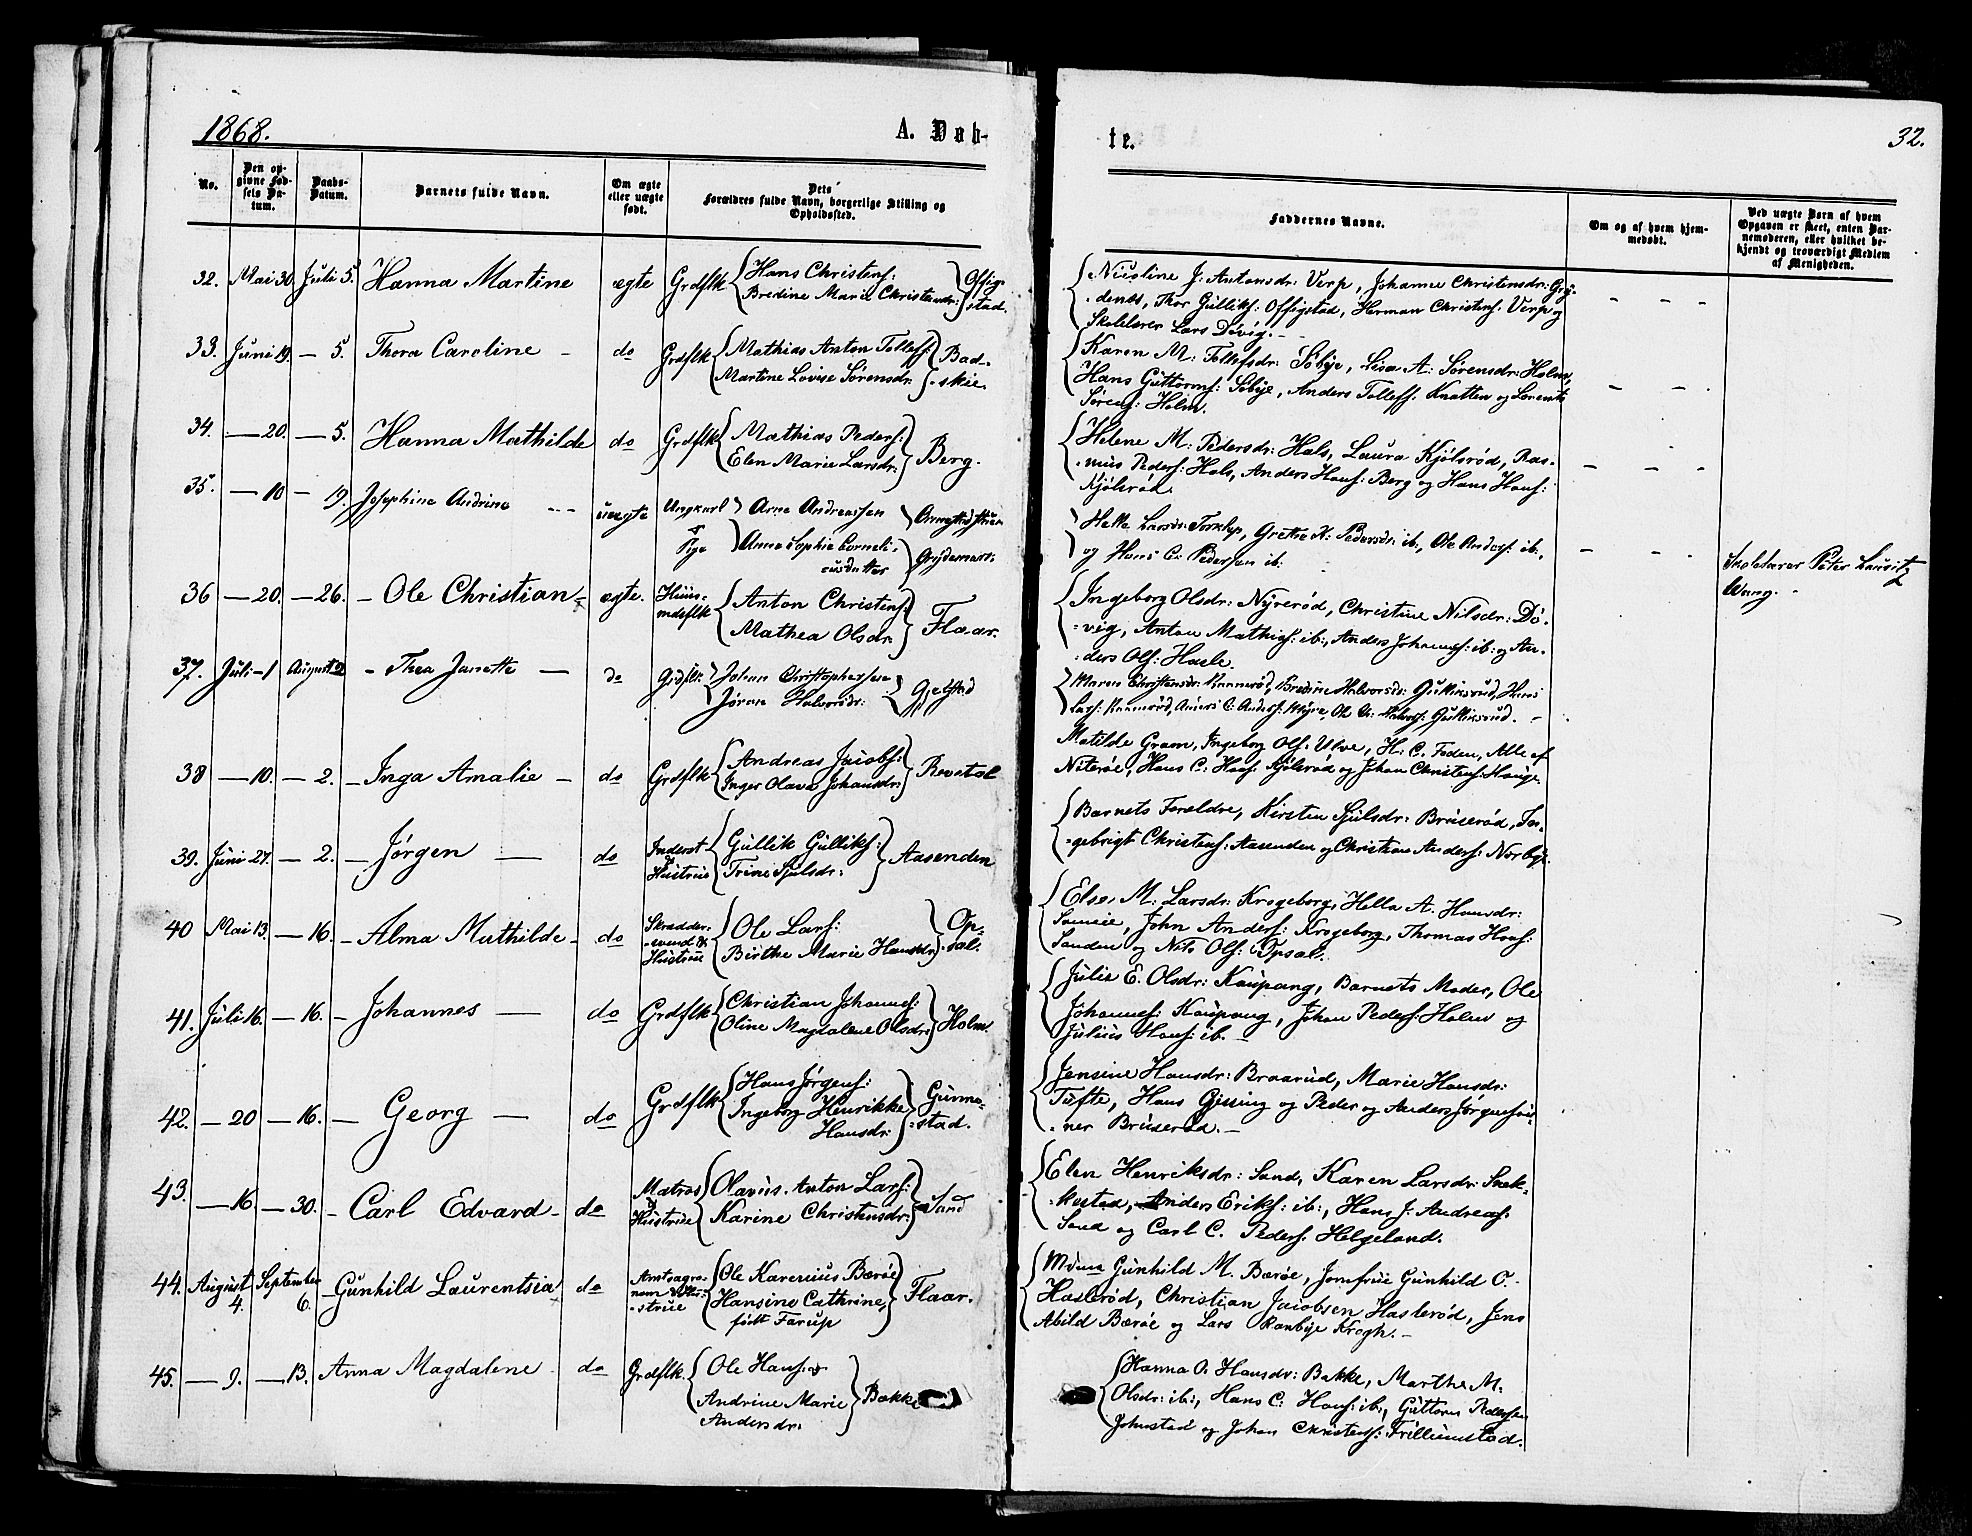 1868.
A. Døb-
te.
32.
No.
Den op-
givne Fød-
sels Da-
tum.
Daabs-
Datum.
Barnets fulde Navn.
Om ægte
eller uægte
født.
Dets
Forældres fulde Navn, borgerlige Stilling og
Opholdssted.
Faddernes Navne.
Om og af hvem hjem-
medøbt.
Ved uægte Børn af hvem
Opgaven er skeet, enten Bar-
nemoderen, eller hvilket be-
kjendt og troværdigt Medlem
af Menigheden.
32. Mai 30. Juli 5. Hanna Martine ægte Grdflk Hans Christens:
Bredine Marie Christensdr: Offig-
stad.
J: Antonsdr: Verp, Johanne Christensdr: Gry-
denæs, Thor Gulliks: Offigstad, Herman Christens: Verp og
Skolelærer Lars Døvig.
33. Juni 19. — 5. Thora Caroline — do Grdflk Mathias Anton Tollefs:
Martine Lovise Sørensdr. Bad-
skie.
Karen M: Tollefsdr: Søbye, Lisa A: Sørensdr: Holm,
Hans Guttorms: Søbye, Anders Tollefs. Knatten og Lorents
Sørens: Holm.
34. — 20. — 5. Hanna Mathilde do Grdflk Mathias Peders:
Elen Marie Larsdr: Berg.
Helene M: Pedersdr: Hals, Laura Kjølsrød, Ras-
mus Peders: Hals, Anders Hans: Berg og Hans Hans:
Kjølsrød.
35. — 10 — 19. Josephine Andrine uægte Ungkarl Arne Andreassen
Pige Anna Sophie Corneli-
usdatter
Larsdr: Torklep, Grethe K: Pedersdr: ib:, Ole Anders: ib:,
og Hans C: Pedersen ib:
Skolelærer Peter Lauritz
Wang.
36 — 20. — 26. — Ole Christian — ægte. Huus-
mdsflk Anton Christens:
Mathea Olsdr: Flaar.
Ingeborg Olsdr: Nyrerød, Christine Nilsdr: Dø-
vig, Anton Mathias: ib:, Anders Johannes: ib: og An-
ders Ols: Hasle.
37. Juli 1 August 2 — Thea Janette — do Grdflk: Johan Christophersen
Jøran Halvorsdr: Gjelstad
Maren Christensdr: Rammerød, Bredine Halvorsdr: Gulliksrud, Hans
Lars: Rammerød, Anders C: Anders: Høyre, Ole Chr: Halvors: Gulliksrud.
38 — 10. — 2. — Inga Amalie — do Grdflk Andreas Jacobs:
Inger Olava Johansdr: Revetal
Matilde Gram, Ingeborg Ols: Ulve, H. C. Foden, Alle af
Niterøe, Hans C: Hans: Kjølsrød og Johan Christens: Hauge.
39. Juni 27. — 2. — Jørgen — do Inderst
& Hustrue Gullik Gulliks:
Trine Sjulsdr: Aasenden
Barnets Forældre, Kirsten Sjulsdr: Bruserød, In-
gebrigt Christens: Aasenden og Christian Anders: Norbye.
40 Mai 13. — 16. — Alma Mathilde — do Skrædder-
svend &
Hustrue Ole Lars:
Birthe Marie Hansdr: Op-
sal.
Else M: Larsdr: Krogeborg, Hella A. Hansdr:
Sameie, John Anders: Krogeborg, Thomas Hans:
Sanden og Nils Ols: Opsal.
41. Juli 16. — 16. — Johannes — do Grdflk Christian Johannes:
Oline Magdalene Olsdr: Holm
Julie E. Olsdr: Kaupang, Barnets Moder, Ole
Johannes: Kaupang, Johan Peders: Holm og
Julius Hans: ib.
42. — 20 — 16. — Georg — do Grdflk Hans Jørgens:
Ingeborg Henrikke
Hansdr: Gunna-
stad.
Jensine Hansdr: Braarud, Marie Hansdr:
Tufte, Hans Gjssing og Peder og Anders Jørgensøn-
ner Bruserød. —
43. — 16. — 30. — Carl Edvard — do Matros
& Hustrue Olavus Anton Lars:
Karine Christensdr: Sand
Elen Henriksdr: Sand, Karen Larsdr: Snek-
kestad, Anders Eriks: ib:, Hans J: Andreas:
Sand og Carl C. Peders: Helgeland.
44. August 4. September 6. Gunhild Laurentsia do Amtsagro-
nom & Hu-
strue Ole Karenius Barøe
Hansine Cathrine,
født Farup Flaar.
Gunhild M. Barøe, Jomfrue Gunhild O.
Haslerød, Christian Jacobsen Haslerød, Jens
Abild Barøe og Lars Krogh. —
45. — 9. — 13. Anna Magdalene do Grdflk. Ole Hans: &
Andrine Marie
Andersdr: Bakke
Hanna O. Hansdr: Bakke, Marthe M.
Olsdr: ib:, Hans C: Hans: ib:, Guttorm Pedersen
Johnstad og Johan Christens: